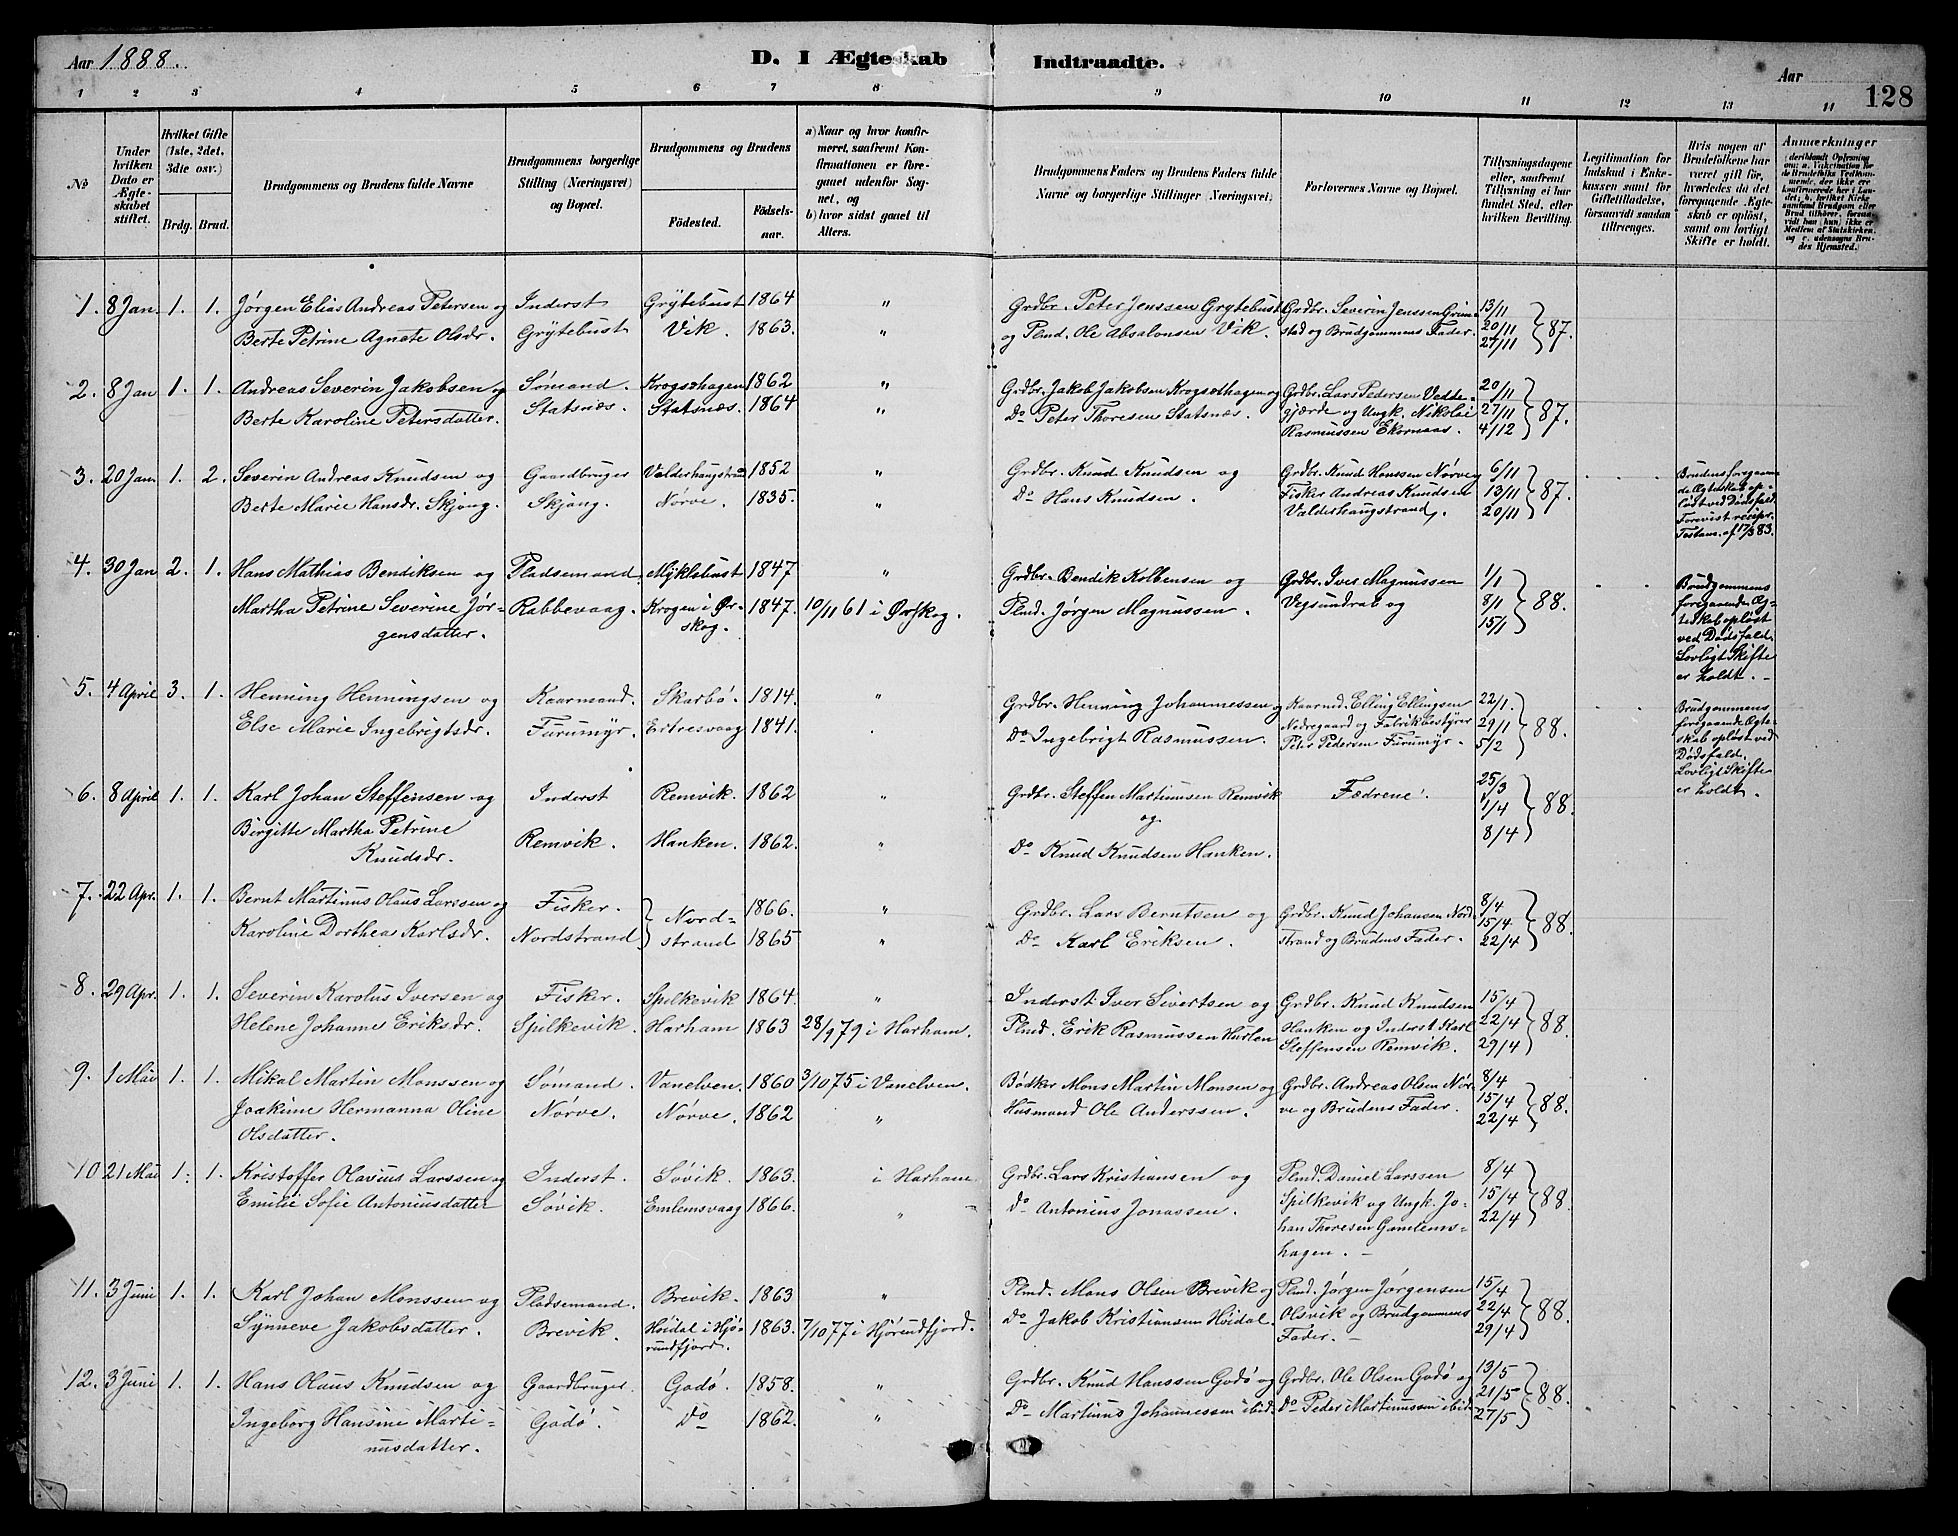 Aar 1888.
D. I Ægteskab Indtraadte.
Aar
128
1 2 3 4 5 6 7 8 9 10 11 12 13 14
No
Under hvilken Dato er Ægteskabet stiftet.
Hvilket Gifte (1ste, 2det, 3die osv.)
Brdg. Brud.
Brudgommens og Brudens fulde Navne
Brudgommens borgerlige Stilling (Næringsvei) og Bopæl.
Brudgommens og Brudens
Fødested.
Fødselsaar.
a) Naar og hvor konfirmeret, saafremt Konfirmationen er foregaaet udenfor Sognet, og
b) hvor sidst gaaet til Alters.
Brudgommens Faders og Brudens Faders fulde Navne og borgerlige Stillinger (Næringsvei).
Forlovernes Navne og Bopæl.
Tillysningsdagene eller, saafremt Tillysning ei har fundet Sted, efter hvilken Bevilling.
Legitimation for Indskud i Enkekassen samt for Giftetilladelse, forsaavidt saadan tiltrænges.
Hvis nogen af Brudefolkene har været gift før, hvorledes da det foregaaende Ægteskab er opløst, samt om lovligt Skifte er holdt.
Anmærkninger
1. 8 Jan. 1. 1. Jørgen Elias Andreas Petersen og Inderst Grytebust 1864 " Grdbr. Peter Jenssen Grytebust Grdbr. Severin Jenssen Grim- 13/11
Berte Petrine Agnate Olsdr. Grytebust Vik. 1863. " og Plmd. Ole Absalonsen Vik. stad og Brudgommens Fader. 20/11 87.
27/11
2. 8 Jan 1. 1. Andreas Severin Jakobsen og Sømand. Krogsothagen 1862 " Grdbr. Jakob Jakobsen Krogsothagen og Grdbr. Lars Pedersen Vedde- 20/11
Berte Karoline Petersdatter. Statsnæs. Statsnæs. 1864 " Do Peter Thoresen Statsnæs. gjærde og Ungk. Nikolai 27/11 87.
Rasmussen Ekornaas. 4/12
3. 20 Jan 1. 2. Severin Andreas Knudsen og Gaardbruger Valderhaugstrand 1852 " Grdbr. Knud Knudsen og Grdbr. Knud Hanssen Nørve og 6/11
Berte Marie Hansdr. Skjong. Skjong. Nørve. 1835. " Do Hans Knudsen. Fisker Andreas Knudsen 13/11 87.
Valderhaugstrand. 20/11
Brudens foregaaen-
de Ægteskab op-
løst ved Dødsfald.
Forevist recipr.
Testam. af 17/3 83.
4. 30 Jan 2. 1. Hans Mathias Bendiksen og Pladsemand Myklebust 1847 " Grdbr. Bendik Kolbensen og Grdbr. Iver Magnussen 1/1
Martha Petrine Severine Jør- Rabbevaag. Krogen i Ør- 1847. 10/11 61 i Ørskog. Plmd. Jørgen Magnussen. Vejsundrab og 8/1 88.
gensdatter. skog. 15/1
Brudgommens
foregaaende Æg-
teskab opløst
ved Dødsfald.
Lovligt Skifte
er holdt. -
5. 4 April 3. 1. Henning Henningsen og Kaarmand. Skarbø. 1814 " Grdbr. Henning Johannessen og Kaarmd. Elling Ellingsen 22/1.
Else Marie Ingebrigtsdr. Furumyr. Ertresvaag 1841. . Do Ingebrigt Rasmussen. Nedregaard og Fabrikbestyrer 29/1 88.
Peter Pedersen Furumyr. 5/2
Brudgommens
foregaaende Ægte-
skab opløst ved
Dødsfald.
Lovligt Skifte
er holdt.
6. 8 April 1. 1. Karl Johan Steffensen og Inderst Remvik. 1862 " Grdbr. Steffen Martinusen Remvik Fædrene. 25/3
Birgitte Martha Petrine og 1/4 88.
Knudsdr. Remvik. Hanken. 1862. " Do Knud Knudsen Hanken. 8/4
7. 22 Apr. 1. 1. Bernt Martinus Olaus Larssen og Fisker. Nord- 1866. " Grdbr. Lars Berntsen og Grdbr. Knud Johansen Nord- 8/4
Karoline Dorthea Karlsdr. Nordstrand strand 1865 " Do Karl Eriksen. strand og Brudens Fader. 15/4 88.
22/4
8. 29 Apr. 1. 1. Severin Karolus Iversen og Fisker. Spilkevik 1864. " Inderst Iver Sivertsen og Grdbr. Knud Knudsen 15/4
Helene Johanne Eriksdr. Spilkevik. Harham 1863 28/9 79 i Harham. Plmd. Erik Rasmussen Hurlen Hanken og Inderst Karl 22/4 88.
Steffensen Remvik. 29/4
9. 1 Mai 1. 1. Mikal Martin Monssen og Sømand. Vanelven. 1860 3/10 75 i Vanelven. Bødker Mons Martin Monsen og Grdbr. Andreas Olsen Nør- 8/4
Joakime Hermanna Oline Nørve. Nørve. 1862 " Husmand Ole Anderssen. ve og Brudens Fader. 15/4 88.
Olsdatter. 22/4
10 21 Mai 1. 1. Kristoffer Olavius Larssen og Inderst. Søvik. 1863. i Harham Grdbr. Lars Kristiansen og Plmd. Daniel Larssen 8/4
Emilie Sofie Antoniusdatter Søvik. Emlemsvaag 1866. " Do Antonius Jonassen. Spilkevik og Ungk. Jo- 15/4 88.
han Thoresen Gamlems- 22/4
hagen. -
11. 3 Juni 1. 1. Karl Johan Monssen og Pladsemand. Brevik. 1863 " Plmd. Mons Olsen Brevik og Plmd. Jørgen Jørgensen 15/4
Synneve Jakobsdatter. Brevik. Høidal i Hjø- 1863. 7/10 77 i Hjørundfjord. Do Jakob Kristiansen Høidal. Olsvik og Brudgommens 22/4 88.
rundfjord. Fader. - 29/4
12. 3 Juni 1. 1. Hans Olaus Knudsen og Gaardbruger Godø. 1858. " Grdbr. Knud Hanssen Godø og Grdbr. Ole Olsen Godø og 13/5
Ingeborg Hansine Marti- Godø. Do 1862. " Do Martinus Johannessen ibid. Do Peder Martinussen ibid 21/5 88.
nusdatter. 27/5